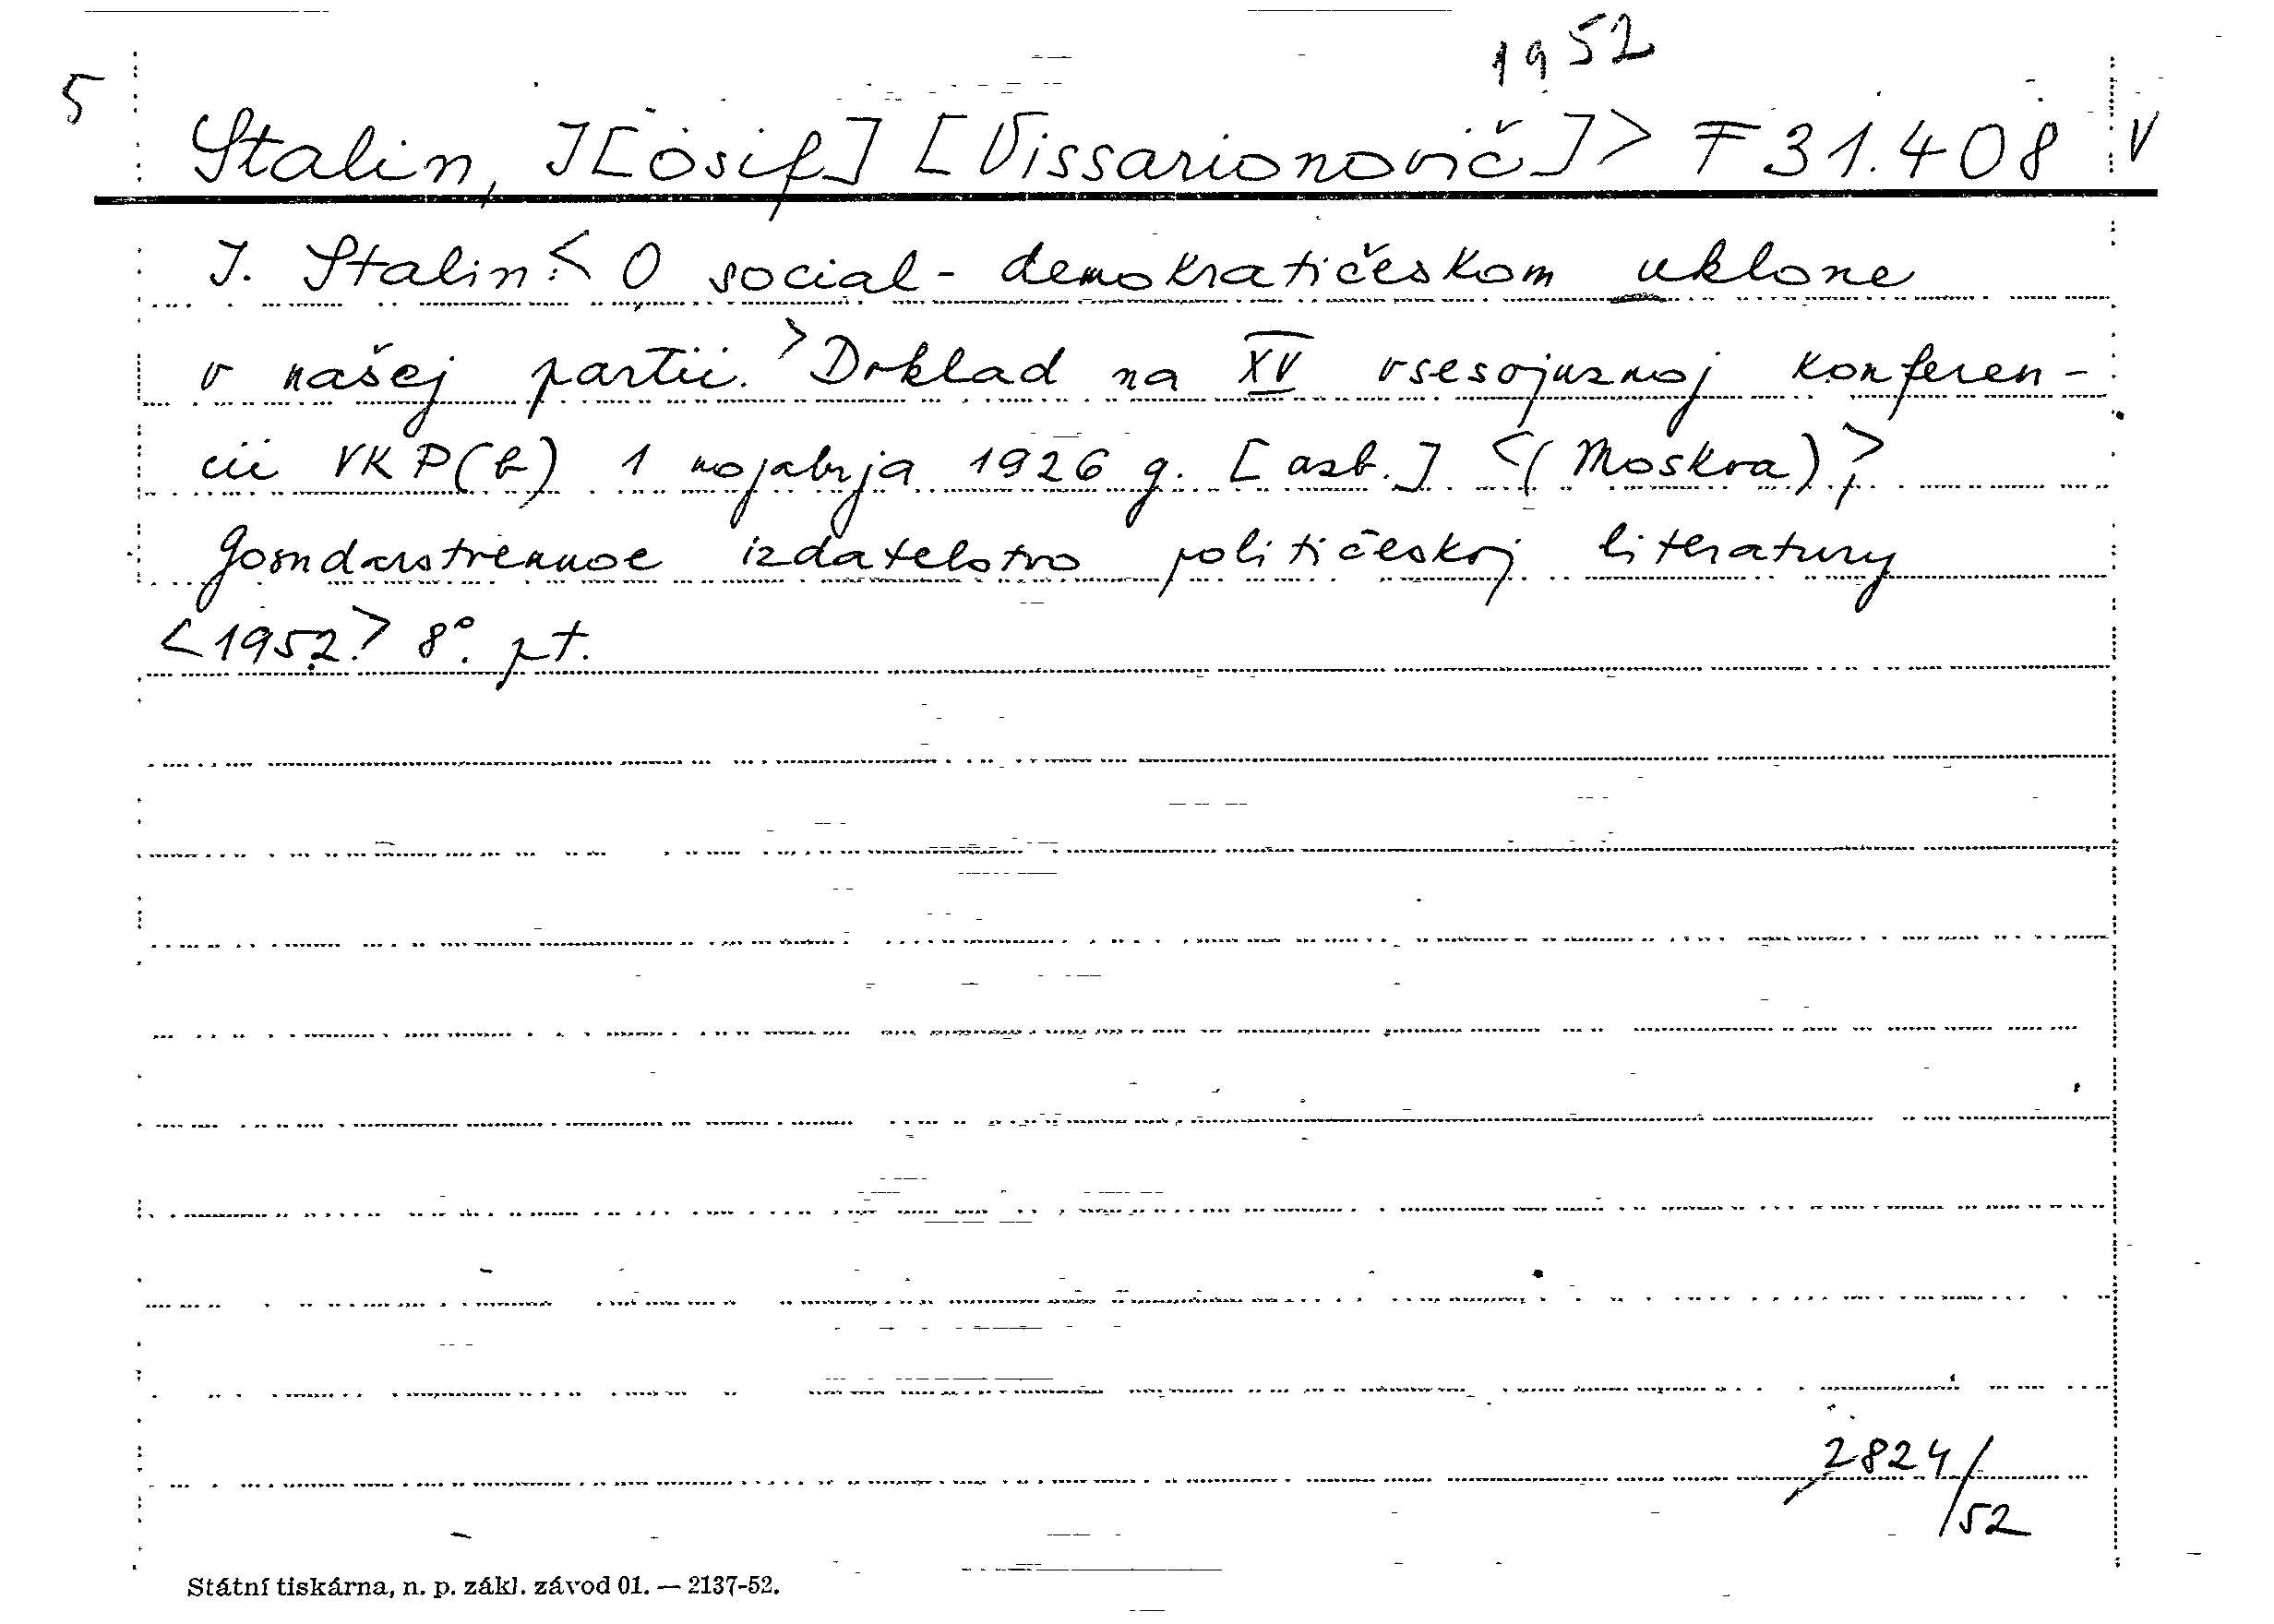 1952
5 Stalin, J[osif] [Vissarionovič]> F 31.408 V
J. Stalin:< O social-demokratičeskom uklone
v našej partii.> Doklad na XV vsesojuznoj konferen-
cii VKP(b) 1 nojabrja 1926 g. [azb.] <(Moskva)>,
Gosudarstvennoe izdatelstvo političeskoj literatury
<1952.> 8°. pt.
2824/
52
Státní tiskárna, n. p. zákl. závod 01. — 2137-52.